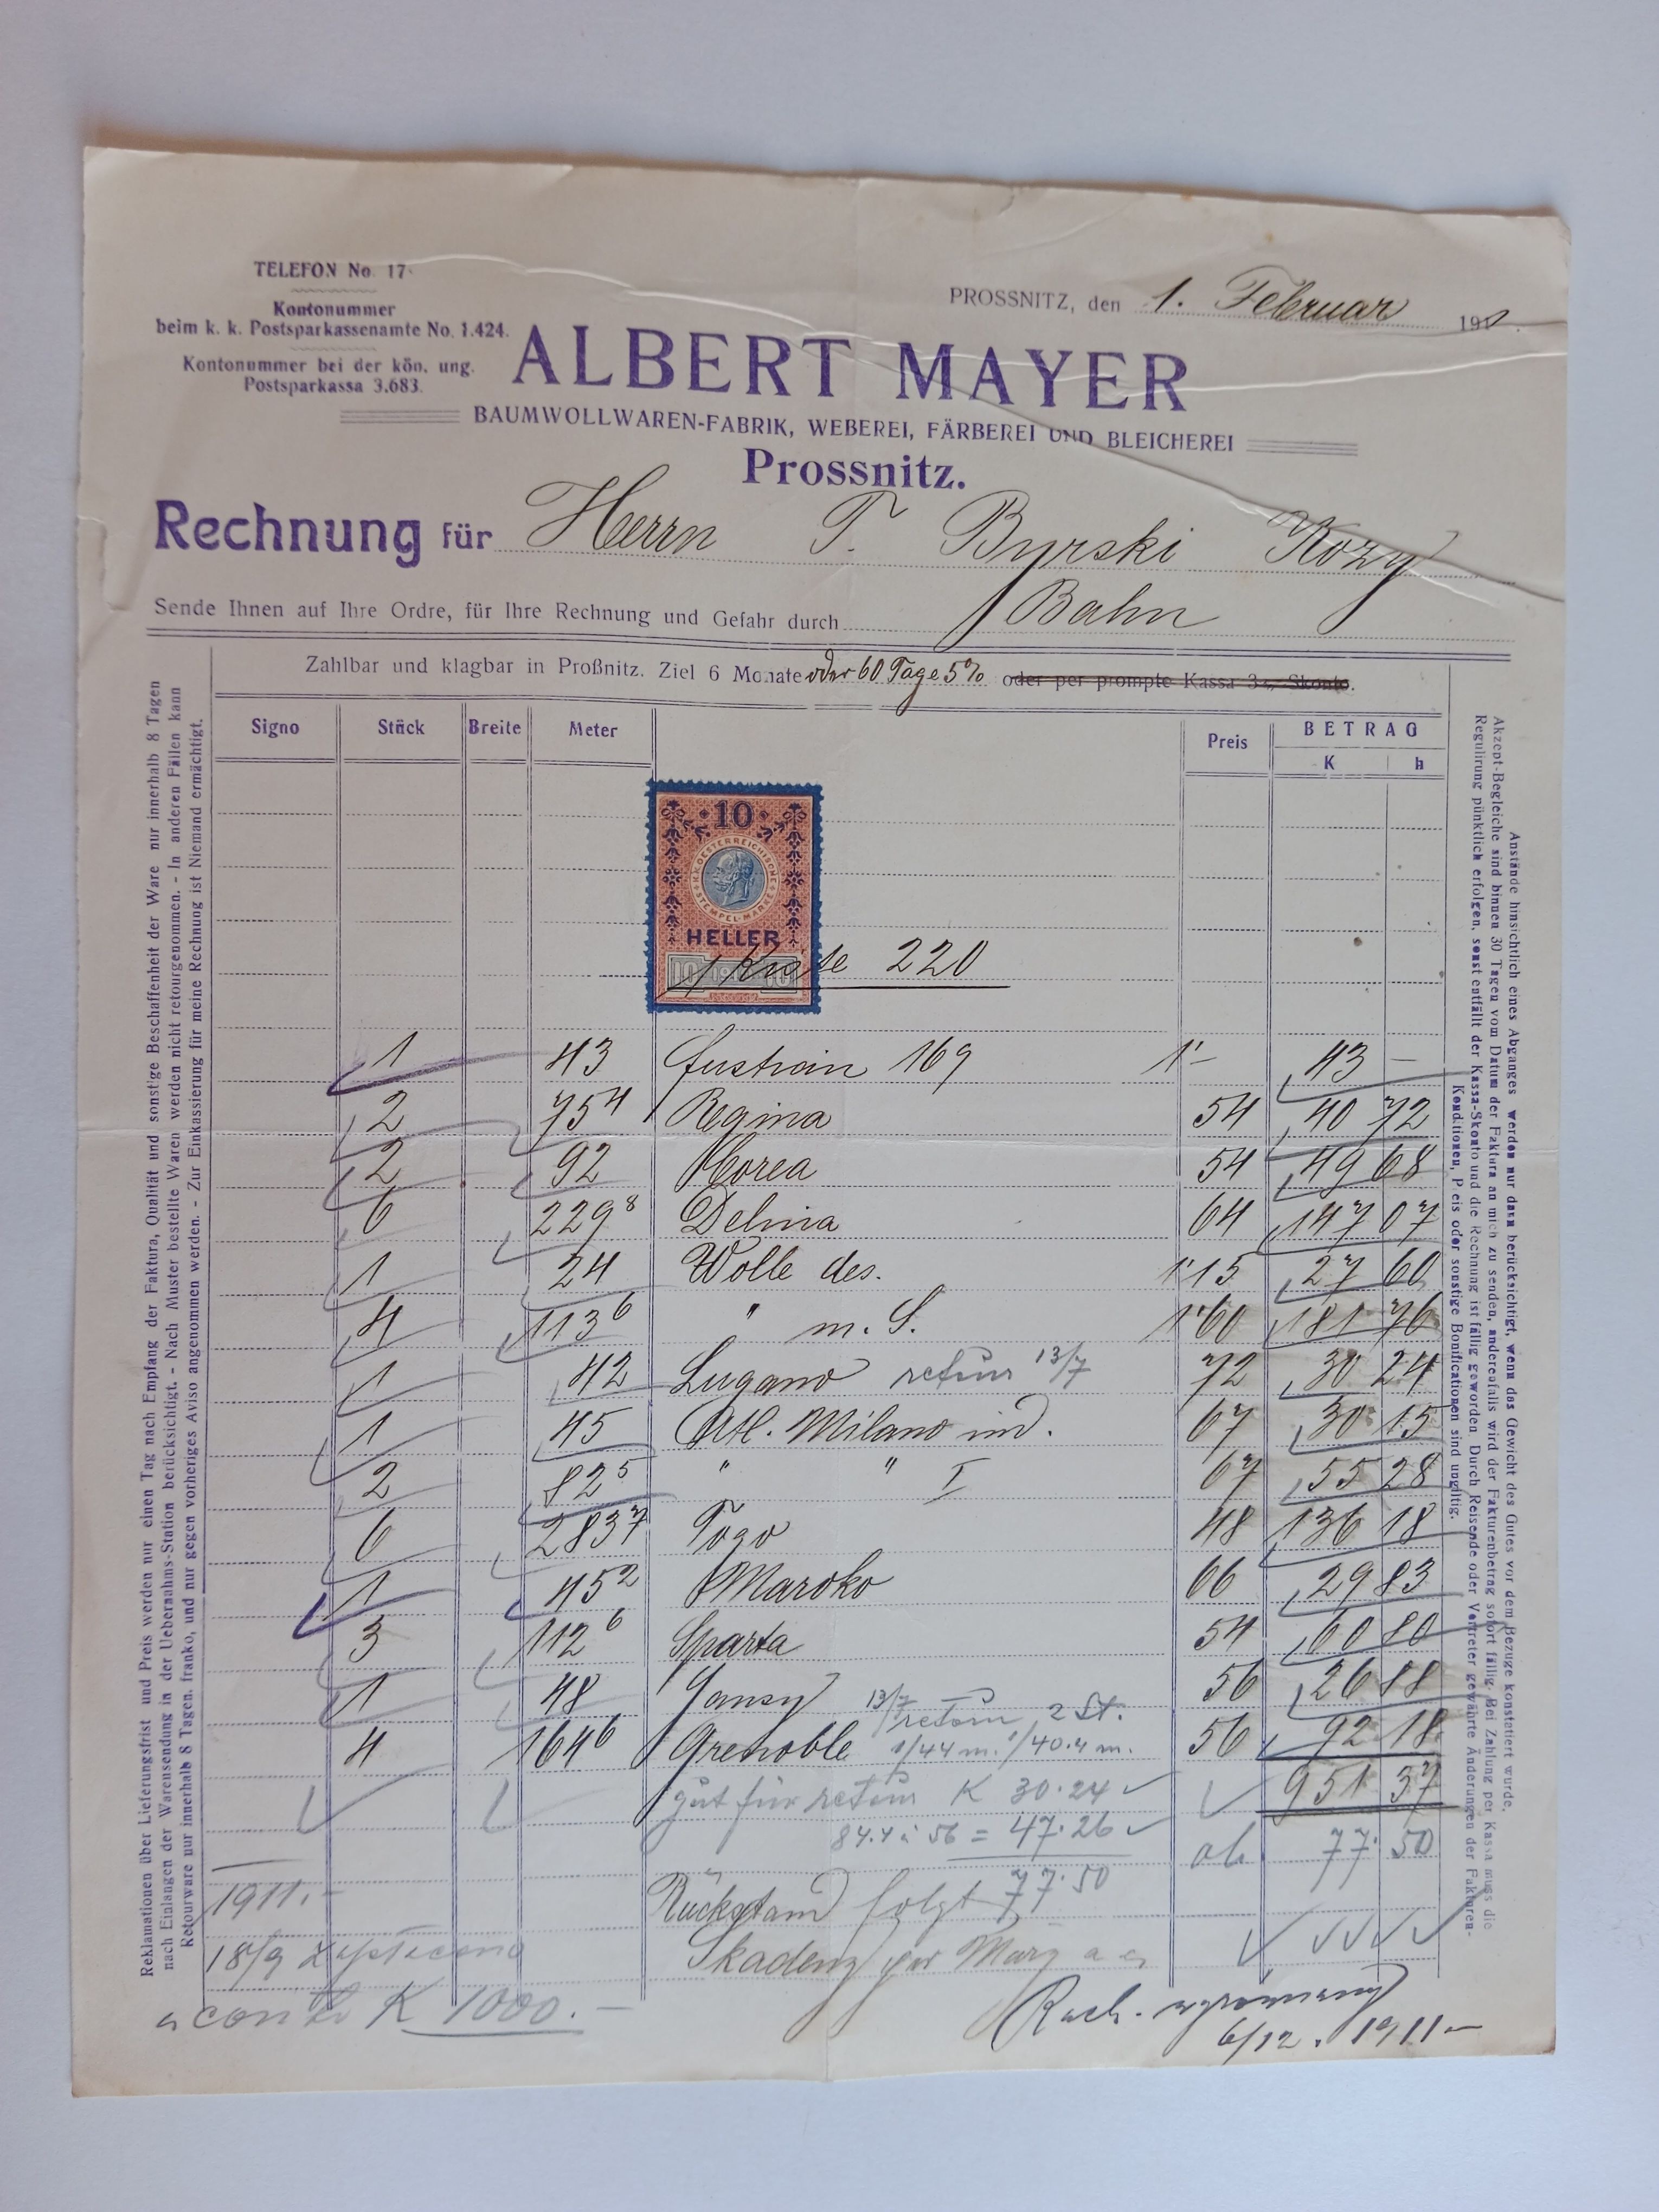 TELEFON No. 17
Kontonummer
beim k. k. Postsparkassenamte No. 1.424.
Kontonummer bei der kön. ung.
Postsparkassa 3.683.
PROSSNITZ, den 1. Februar 191
ALBERT MAYER
BAUMWOLLWAREN-FABRIK, WEBEREI, FÄRBEREI UND BLEICHEREI
Prossnitz.
Rechnung für Herrn T. Byrski Kozy
Sende Ihnen auf Ihre Ordre, für Ihre Rechnung und Gefahr durch Bahn
Zahlbar und klagbar in Proßnitz. Ziel 6 Monate oder 60 Tage 5% oder per prompte Kassa 3% Skonto.
Signo Stück Breite Meter Preis BETRAG
K h
10
K.K. OESTERREICHISCHE STEMPEL-MARKE
HELLER
1 Kiste 220
1 43 169 1'- 43 —
2 75 4 Regina 54 40 72
2 92 Korea 54 49 68
6 229 8 Delina 64 147 07
1 24 Wolle des. 1'15 27 60
4 113 6 " m. S. 1'60 181 76
1 42 Lugano retour 13/7 72 30 24
1 45 Atl. Milano ind. 67 30 15
2 82 5 " " I 67 55 28
6 283 7 Togo 48 136 18
1 45 2 Maroko 66 29 83
3 112 6 Sparta 54 60 80
1 48 Jansy 56 26 88
13/7 retour 2 St.
4 164 6 Grenoble 1/44 m. 1/40.4 m. 56 92 18
gut für retour K 30.24 951 37
84.4 à 56 = 47.26 ab 77.50
77.50
1911.-
Rückstand folgt
18/9
Skadenz per März a c
a conto K 1000.—
6/12. 1911—
Reklamationen über Lieferungsfrist und Preis werden nur einen Tag nach Empfang der Faktura, Qualität und sonstige Beschaffenheit der Ware nur innerhalb 8 Tagen
nach Einlangen der Warensendung in der Uebernahms-Station berücksichtigt. - Nach Muster bestellte Waren werden nicht retourgenommen. - In anderen Fällen kann
Retourware nur innerhalb 8 Tagen, franko, und nur gegen vorheriges Aviso angenommen werden. - Zur Einkassierung für meine Rechnung ist Niemand ermächtigt.
Anstände hinsichtlich eines Abganges werden nur dann berücksichtigt, wenn das Gewicht des Gutes vor dem Bezuge konstatiert wurde.
Akzept-Begleiche sind binnen 30 Tagen vom Datum der Faktura an mich zu senden, anderenfalls wird der Fakturenbetrag sofort fällig. Bei Zahlung per Kassa muss die
Regulirung pünktlich erfolgen, sonst entfällt der Kassa-Skonto und die Rechnung ist fällig geworden. Durch Reisende oder Vertreter gewährte Änderungen der Fakturen-
Konditionen, Preis oder sonstige Bonificationen sind ungiltig.